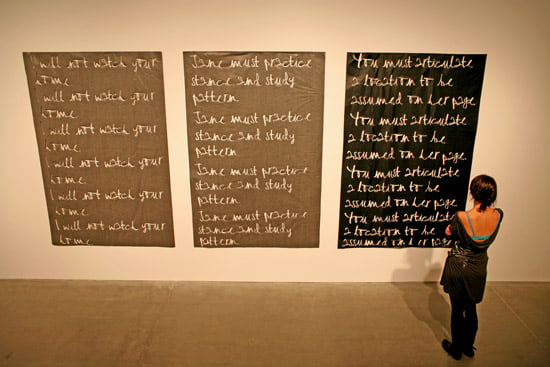 I will not watch your
home.
I will not watch your
home.
I will not watch your
home.
I will not watch your
home.
I will not watch your
home.
I will not watch your
home.
Jane must practice
stance and study
pattern.
Jane must practice
stance and study
pattern.
Jane must practice
stance and study
pattern.
Jane must practice
stance and study
pattern.
You must articulate
a location to be
assumed on her page.
You must articulate
a location to be
assumed on her page.
You must articulate
a location to be
assumed on her page.
You must articulate
a location to be
assumed on her page